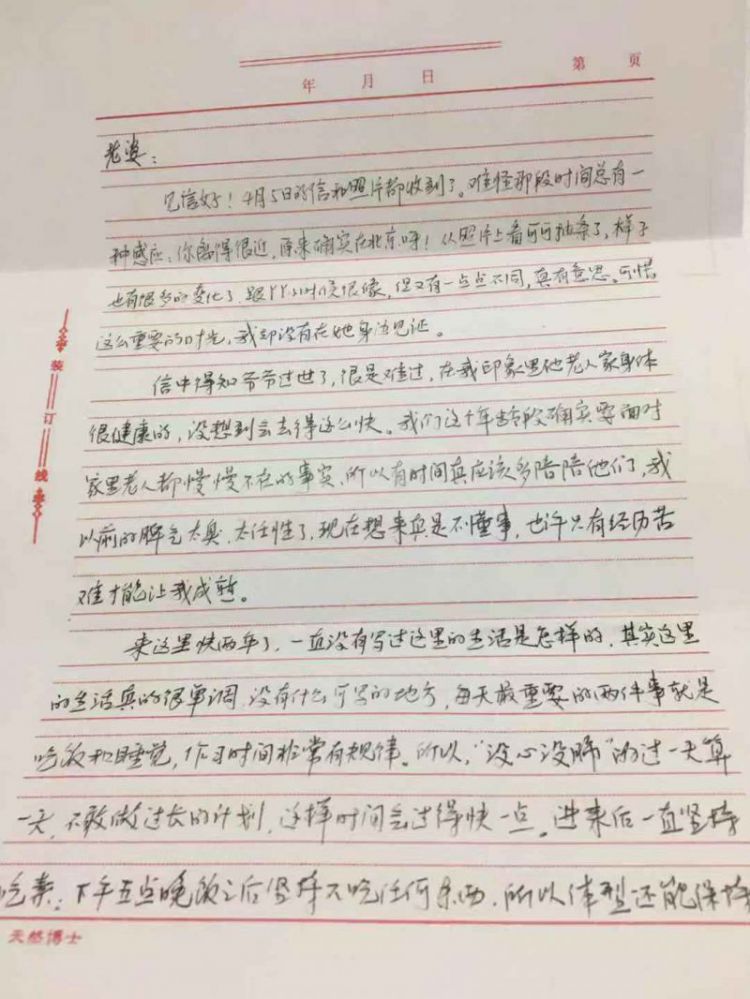 年 月 日
第 页
老婆：
见信好！4月5日的信和照片都收到了。难怪那段时间总有一
种感应，你离得很近，原来确实在北京呀！从照片上看可可抽条了，样子
也有很多的变化了，跟YY小时候很像，但又有一点点不同，真有意思。可惜
这么重要的时光，我却没有在她身边见证。
信中得知爷爷过世了，很是难过，在我印象里他老人家身体
很健康的，没想到会去得这么快。我们这个年龄段确实要面对
家里老人都慢慢不在的事实，所以有时间真应该多陪陪他们，我
以前的脾气太臭，太任性了，现在想来真是不懂事，也许只有经历苦
难才能让我成熟。
来这里快两年了，一直没有写过这里的生活是怎样的，其实这里
的生活真的很单调，没有什么可写的地方，每天最重要的两件事就是
吃饭和睡觉，作习时间非常有规律。所以，“没心没肺”的过一天算
一天，不敢做过长的计划，这样时间会过得快一点。进来后一直坚持
吃素，下午五点晚饭之后坚持不吃任何东西，所以体型还能保持
装订线
天然博士